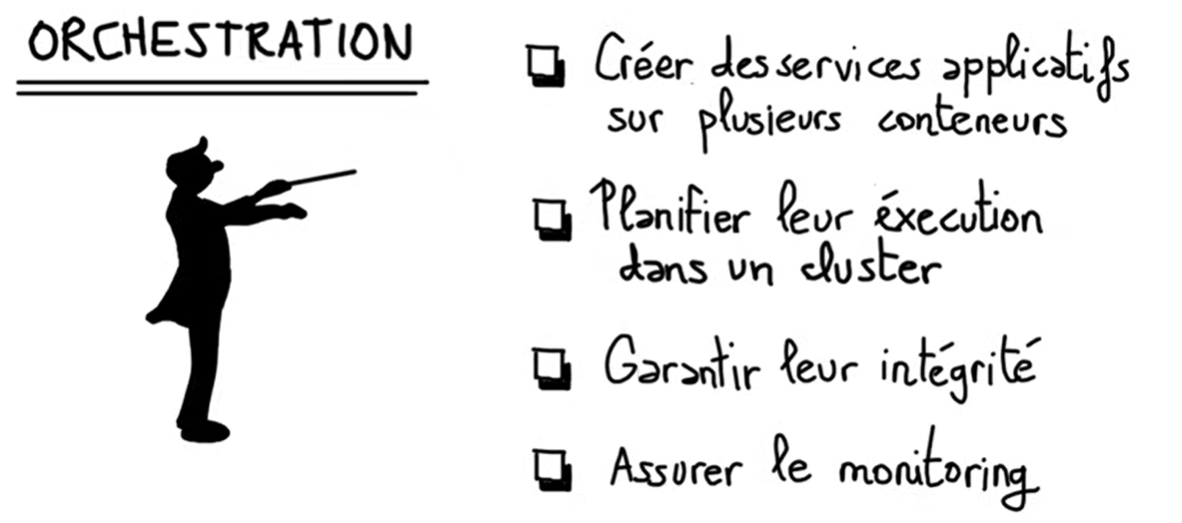 ORCHESTRATION
Créer des services applicatifs
sur plusieurs conteneurs
Planifier leur éxecution
dans un cluster
Garantir leur intégrité
Assurer le monitoring